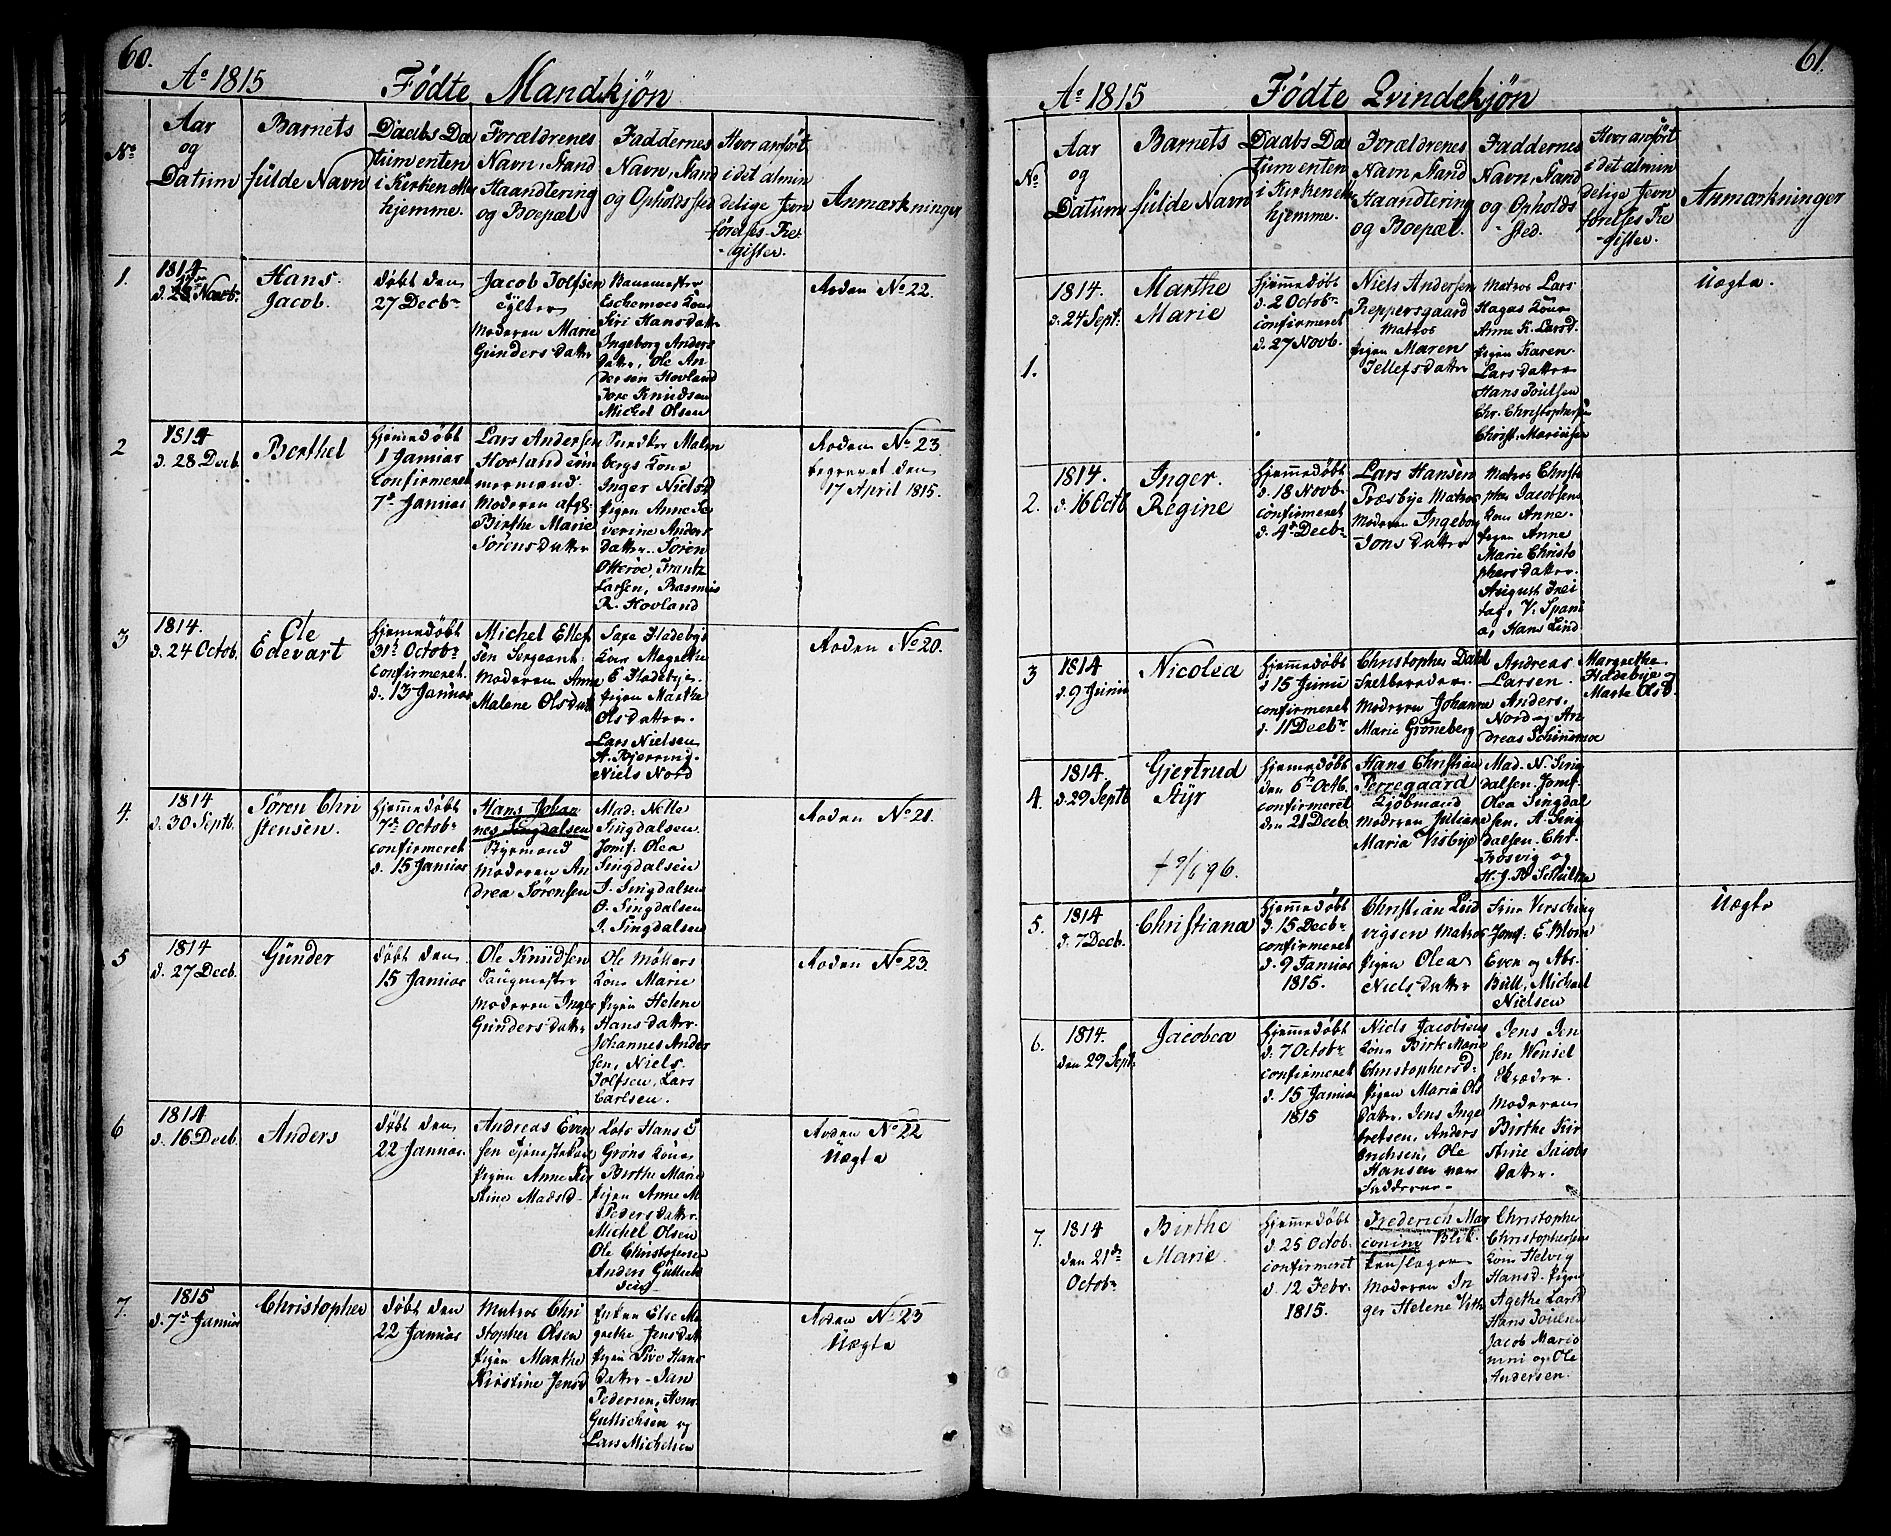 60.
Ao 1815 Fødte Mandkjøn
No
Aar
og
Datum
Barnets
fulde Navn
Daabs Da
tum enten
i Kirken eller
hjemme.
Forældrenes
Navn, Stand
Haandtering
og Boepæl
Faddernes
Navn, Stand
og Opholdssted
Hvor anført
i det almin
delige Jevn
førelses-Re-
gister.
Anmærkninger
1.
1814
d. 28 Novbr
Hans
Jacob.
døbt den
27 Decbr
Jacob Tolfsen
Moderen Marie
Gundersdatter
Kone
Siri Hansdatter
Ingeborg Anders
datter, Ole An
dersen Hovland
Tore Knudsen
Michel Olsen
Aoden No 22.
2
1814
d. 28 Decb.
Berthel
hjemmedøbt
1 Januar
confirmeret
7de Januar
Lars Andersen
Hovland tøm
mermand.
Moderen afg:
Birthe Marie
Sørensdatter
Malm
bergs Kone
Inger Nielsd
Pigen Anne Se
verine Anders
datter. Søren
Otterøe, Frantz
Larsen, Rasmus
R. Hovland
Aoden No 23
begravet den
17 April 1815.
3
1814.
d. 24 Octob.
Ole
Edevart
hjemmedøbt
31te Octobr
confirmeret
d. 13 Januar
Michel Ellef
sen Sergeant.
Moderen Anne
Malene Olsdatt
Kone Magrethe
E Fladebye.
Pigen Marthe
Olsdatter.
Lars Nielsen
A. Bjerring
Niels Nord
Aoden No 20.
4.
1814
d. 30 Septb.
Søren Chri
stensen.
hjemmedøbt
7de Octobr
confirmeret
d. 15 Januar
Hans Johan
nes Singdalsen
Styrmand
Moderen An
drea Sørensen
Mad: Nille
Singdalsen
Jomf: Olea
Singdalsen
J. Singdalsen
O. Singdalsen
J. Singdalsen
Aoden No 21.
5
1814
d. 27 Decb.
Gunder
døbt den
15 Januar
Ole Knudsen
Taugmester
Moderen Inger
Gundersdatter
Ole Møkers
Kone Marie
Pigen Helene
Hansdatter.
Johannes Ander
sen, Niels
Tolfsen, Lars
Carlsen.
Aoden No 23.
6
1814
d. 16 Decb.
Anders
døbt den
22 Januar.
Andreas Even
sen tjenestekarl
Pigen Anne Kir
stine Madsd.
Lots Hans E
Grøns Kone
Birthe Marie
Pigen Anne M
Pedersdatter.
Michel Olsen
Ole Christofersen
Anders Gullich
sen
Aoden No 22
Uægte
7.
1815
d. 7de Januar
Christopher
døbt den
22 Januar
Matros Chri
stopher Olsen
Pigen Marthe
Kirstine Jensd
Enken Else Ma
grethe Jensdat
Pigen Sive Hans
datter Jan
Pedersen, Hans
Gullichsen og
Lars Michelsen
Aoden No 23
Uægte
61.
Ao 1815 Fødte Qvindekjøn
No
Aar
og
Datum
Barnets
fulde Navn
Daabs Da
tum enten
i Kirken ell
hjemme.
Forældrenes
Navn, Stand
Haandtering
og Boepæl.
Faddernes
Navn, Stand
og Opholds
sted.
Hvor anført
i det almin
delige Jevn
førelses Re
gister.
Anmærkninger
1.
1814.
d. 24 Sept:
Marthe
Marie
hjemmedøbt
d. 2 Octobr
confirmeret
d. 27 Novb.
Niels Andersen
Reppersgaard
Matros
Pigen Maren
Tellefsdatter
Matros Lars
Hagas Kone
Anne K. Larsd.
Pigen Karen
Larsdatter
Hans Poulsen
Chr. Christophersen
Christ. Mariusen
Uægte.
2.
1814.
d. 16 Octb
Inger
Regine
hjemmedøbt
d. 18 Novb.
confirmeret
d. 4de Decbr
Lars Hansen
Præsbye Matros
Moderen Ingeborg
Jonsdatter
Matros Christo
pher Jacobsens
Kone Anne.
Pigen Anne
Marie Christo
phersdatter.
August Frei
tag, V. Spani
as Hans Lind
3
1814
d. 9 Junii
Nicolea
hjemmedøbt
d. 15 Junii
confirmeret
d. 11 Decbr
Christopher Dahl
Feltbereder
Moderen Johanne
Marie Grøneberg
Andreas
Larsen.
Anders.
Nord og An
dreas Schimmar
Margrethe
Fladebye og
Marte Olsd.
4.
1814.
d. 29 Septb
Gjertrud
Styr
† 9/6 96.
hjemmedøbt
den 6te Octb.
confirmeret
den 21 Decb.
Hans Christian
Perregaard
Kjøbmand
Moderen Juliane
Maria Visbye
Mad. N. Sing
dalsen, Jomf.
Olea Singdal
sen, A. Sing
dalsen. Chr.
Frosvig og
H. J. B Schultz
5.
1814
d. 7 Decb.
Christiana
hjemmedøbt
d. 15 Decbr
confirmeret
d. 9 Januar
1815.
Christian Lud
vigsen Matros
Pigen Olea
Nielsdatter
Virsching
Jomf: E. Blom
Even og Abr
Bull, Michael
Nielsen
Uægte
6.
1814.
den 29 Sept.
Jacobea
hjemmedøbt
d. 7 Octobr
confirmeret
d. 15 Januar
1815
Niels Jacobsens
Kone Birte Marie
Christophersd.
Pigen Maria Ols
datter, Jens Inge
bretsen, Anders
Erichsen, Ole
Hansen var
Fadderne.
Jens Jen
sen Wensel
Skræder
Moderen
Birthe Kir
stine Jacobs
datter.
7.
1814
den 21de
Octobr
Birthe
Marie.
hjemmedøbt
d. 25 Octob.
confirmeret
d. 12 Febr.
1815.
Frederich Mar
conini Blik
kenslager
Moderen In
ger Helene Vith
Christopher
Christophersen
Kone Helvig
Hansd. Pigen
Agethe Larsd
Hans Poulsen
Jacob Mario
nini og Ole
Andersen.